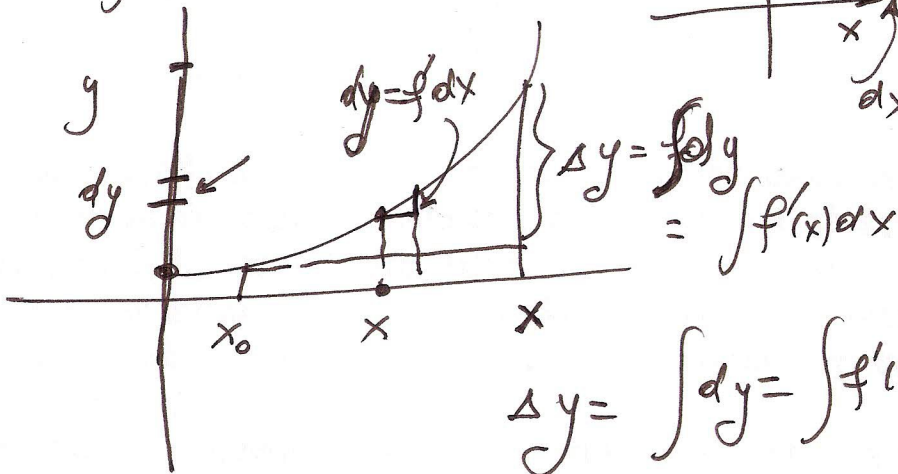 x
dx
y
dy = f'dx
dy
Δy = ∫dy
= ∫f'(x)dx
x₀
x
x
Δy = ∫dy = ∫f'(